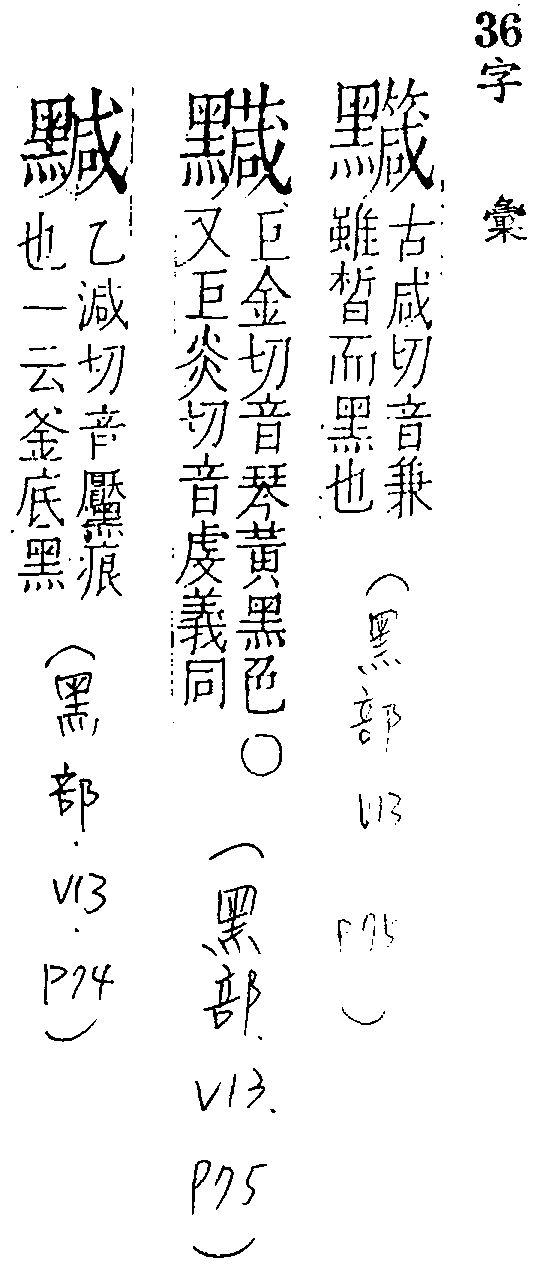 36字彙
𪒹
古咸切音兼
雖皙而黑也
(黑部 V13 P75)
巨金切音琴黃黑色〇
又巨炎切音虔義同
(黑部. V13. P75)
黬
乙減切音黶痕
也一云釜底黑
(黑部.V13.P74)